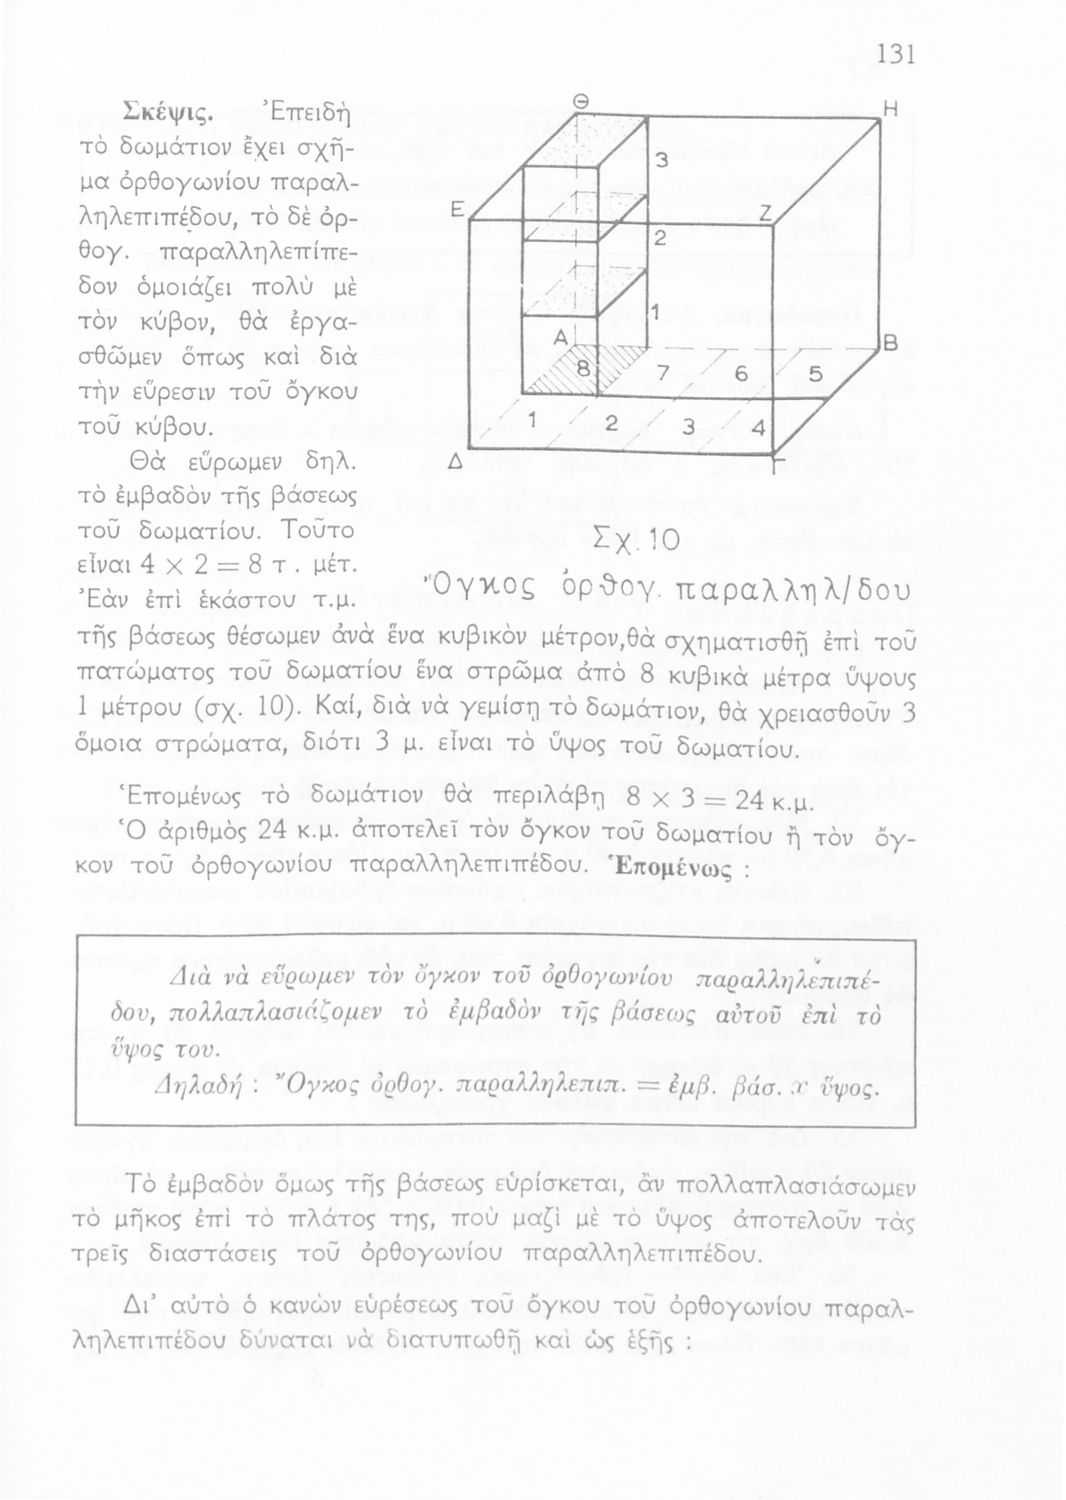 131
Σκέψις. Ἐπειδὴ
τὸ δωμάτιον ἔχει σχῆ-
μα ὀρθογωνίου παραλ-
ληλεπιπέδου, τὸ δὲ ὀρ-
θογ. παραλληλεπίπε-
δον ὁμοιάζει πολὺ μὲ
τὸν κύβον, θὰ ἐργα-
σθῶμεν ὅπως καὶ διὰ
τὴν εὕρεσιν τοῦ ὄγκου
τοῦ κύβου.
Θὰ εὕρωμεν δηλ.
τὸ ἐμβαδὸν τῆς βάσεως
τοῦ δωματίου. Τοῦτο
εἶναι 4 × 2 = 8 τ. μέτ.
Ἐὰν ἐπὶ ἑκάστου τ.μ.
Θ
Η
3
Ε
Ζ
2
1
Α
Β
8 7 6 5
1 2 3 4
Δ
Γ
Σχ. 10
Ὄγκος ὀρθογ. παραλληλ/δου
τῆς βάσεως θέσωμεν ἀνὰ ἕνα κυβικὸν μέτρον,θὰ σχηματισθῇ ἐπὶ τοῦ
πατώματος τοῦ δωματίου ἕνα στρῶμα ἀπὸ 8 κυβικὰ μέτρα ὕψους
1 μέτρου (σχ. 10). Καί, διὰ νὰ γεμίσῃ τὸ δωμάτιον, θὰ χρειασθοῦν 3
ὅμοια στρώματα, διότι 3 μ. εἶναι τὸ ὕψος τοῦ δωματίου.
Ἑπομένως τὸ δωμάτιον θὰ περιλάβῃ 8 × 3 = 24 κ.μ.
Ὁ ἀριθμὸς 24 κ.μ. ἀποτελεῖ τὸν ὄγκον τοῦ δωματίου ἢ τὸν ὄγ-
κον τοῦ ὀρθογωνίου παραλληλεπιπέδου. Ἑπομένως :
Διὰ νὰ εὕρωμεν τὸν ὄγκον τοῦ ὀρθογωνίου παραλληλεπιπέ-
δου, πολλαπλασιάζομεν τὸ ἐμβαδὸν τῆς βάσεως αὐτοῦ ἐπὶ τὸ
ὕψος του.
Δηλαδή : Ὄγκος ὀρθογ. παραλληλεπιπ. = ἐμβ. βάσ. x ὕψος.
Τὸ ἐμβαδὸν ὅμως τῆς βάσεως εὑρίσκεται, ἂν πολλαπλασιάσωμεν
τὸ μῆκος ἐπὶ τὸ πλάτος της, ποὺ μαζὶ μὲ τὸ ὕψος ἀποτελοῦν τὰς
τρεῖς διαστάσεις τοῦ ὀρθογωνίου παραλληλεπιπέδου.
Δι' αὐτὸ ὁ κανὼν εὑρέσεως τοῦ ὄγκου τοῦ ὀρθογωνίου παραλ-
ληλεπιπέδου δύναται νὰ διατυπωθῇ καὶ ὡς ἑξῆς :